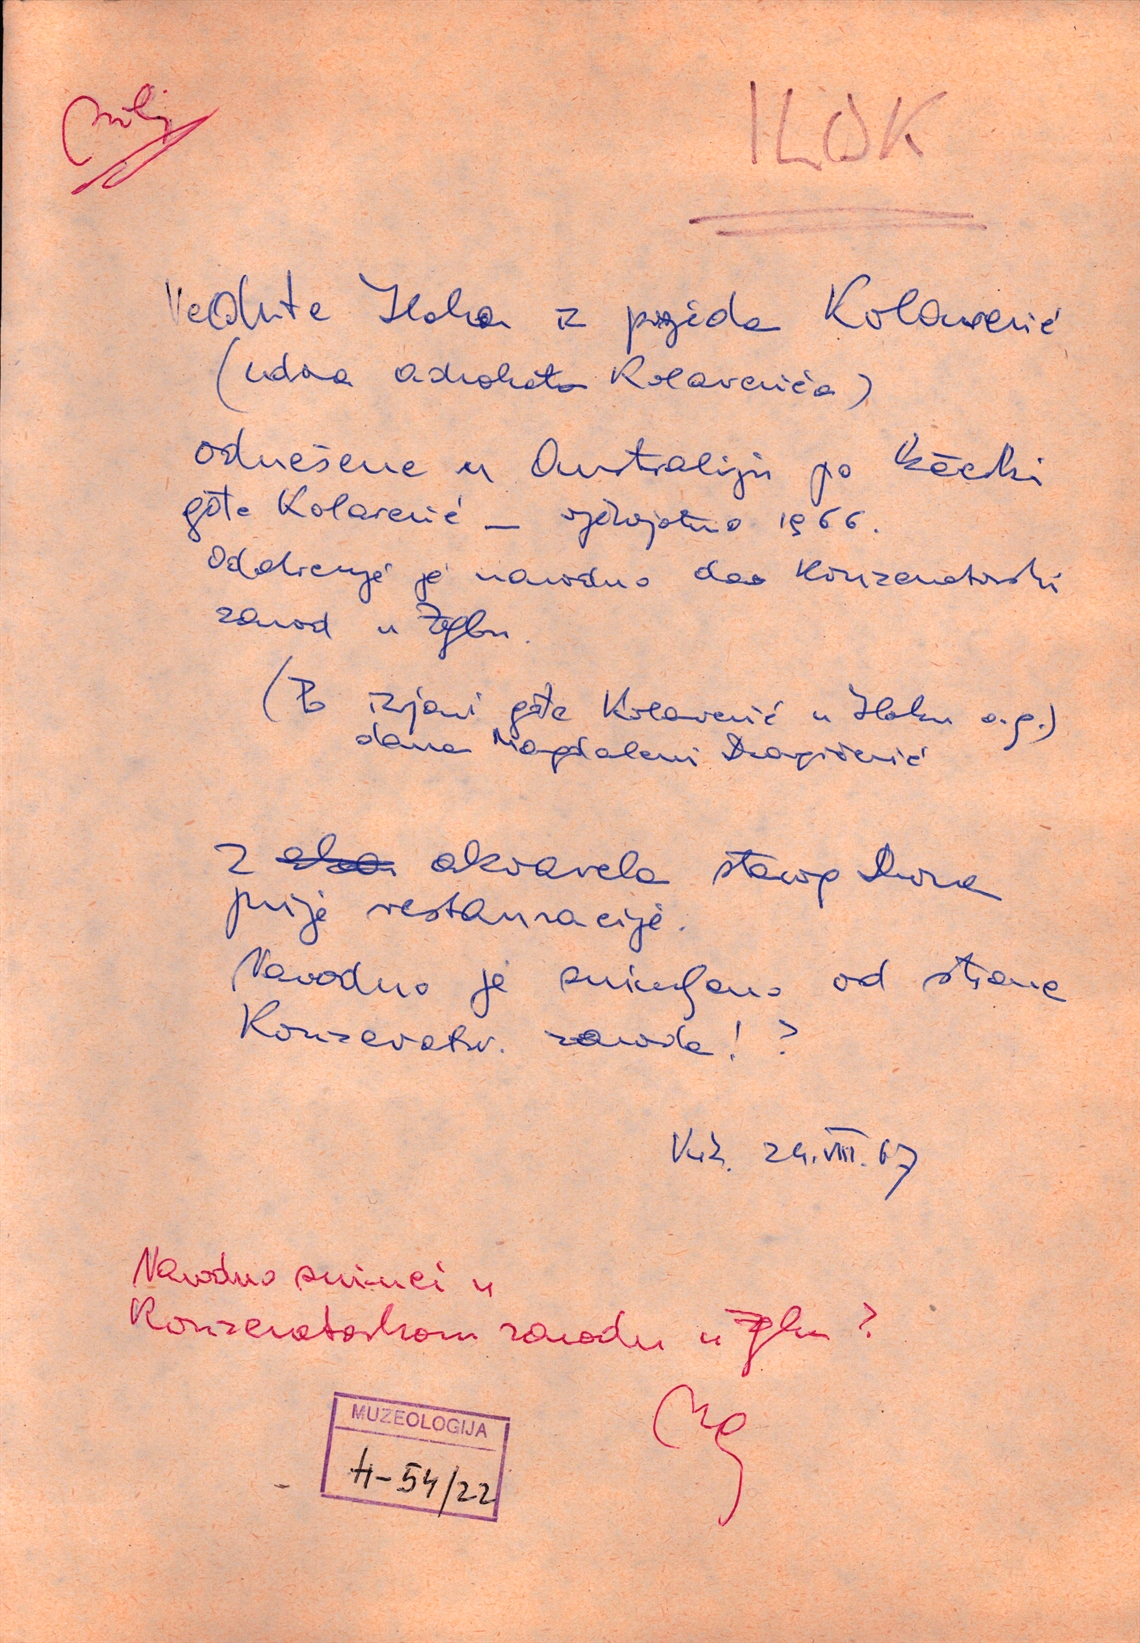 ILOK
Vedute Iloka iz posjeda Kolarević
(udova advokata Kolarevića)
odnešene u Australiju po kćerki
gđe Kolarević — vjerojatno 1966.
Odobrenje je navodno dao Konzervatorski
zavod u Zgbu.
(Po izjavi gđe Kolarević u Iloku o.g.)
dana Magdaleni Dragičević
2 akvarela starog Dvora
prije restauracije.
Navodno je snimljeno od strane
Konzervator. zavoda! ?
24.VIII.67
Navodno snimci u
Konzervatorskom zavodu u Zgbu ?
MUZEOLOGIJA
H-54/22